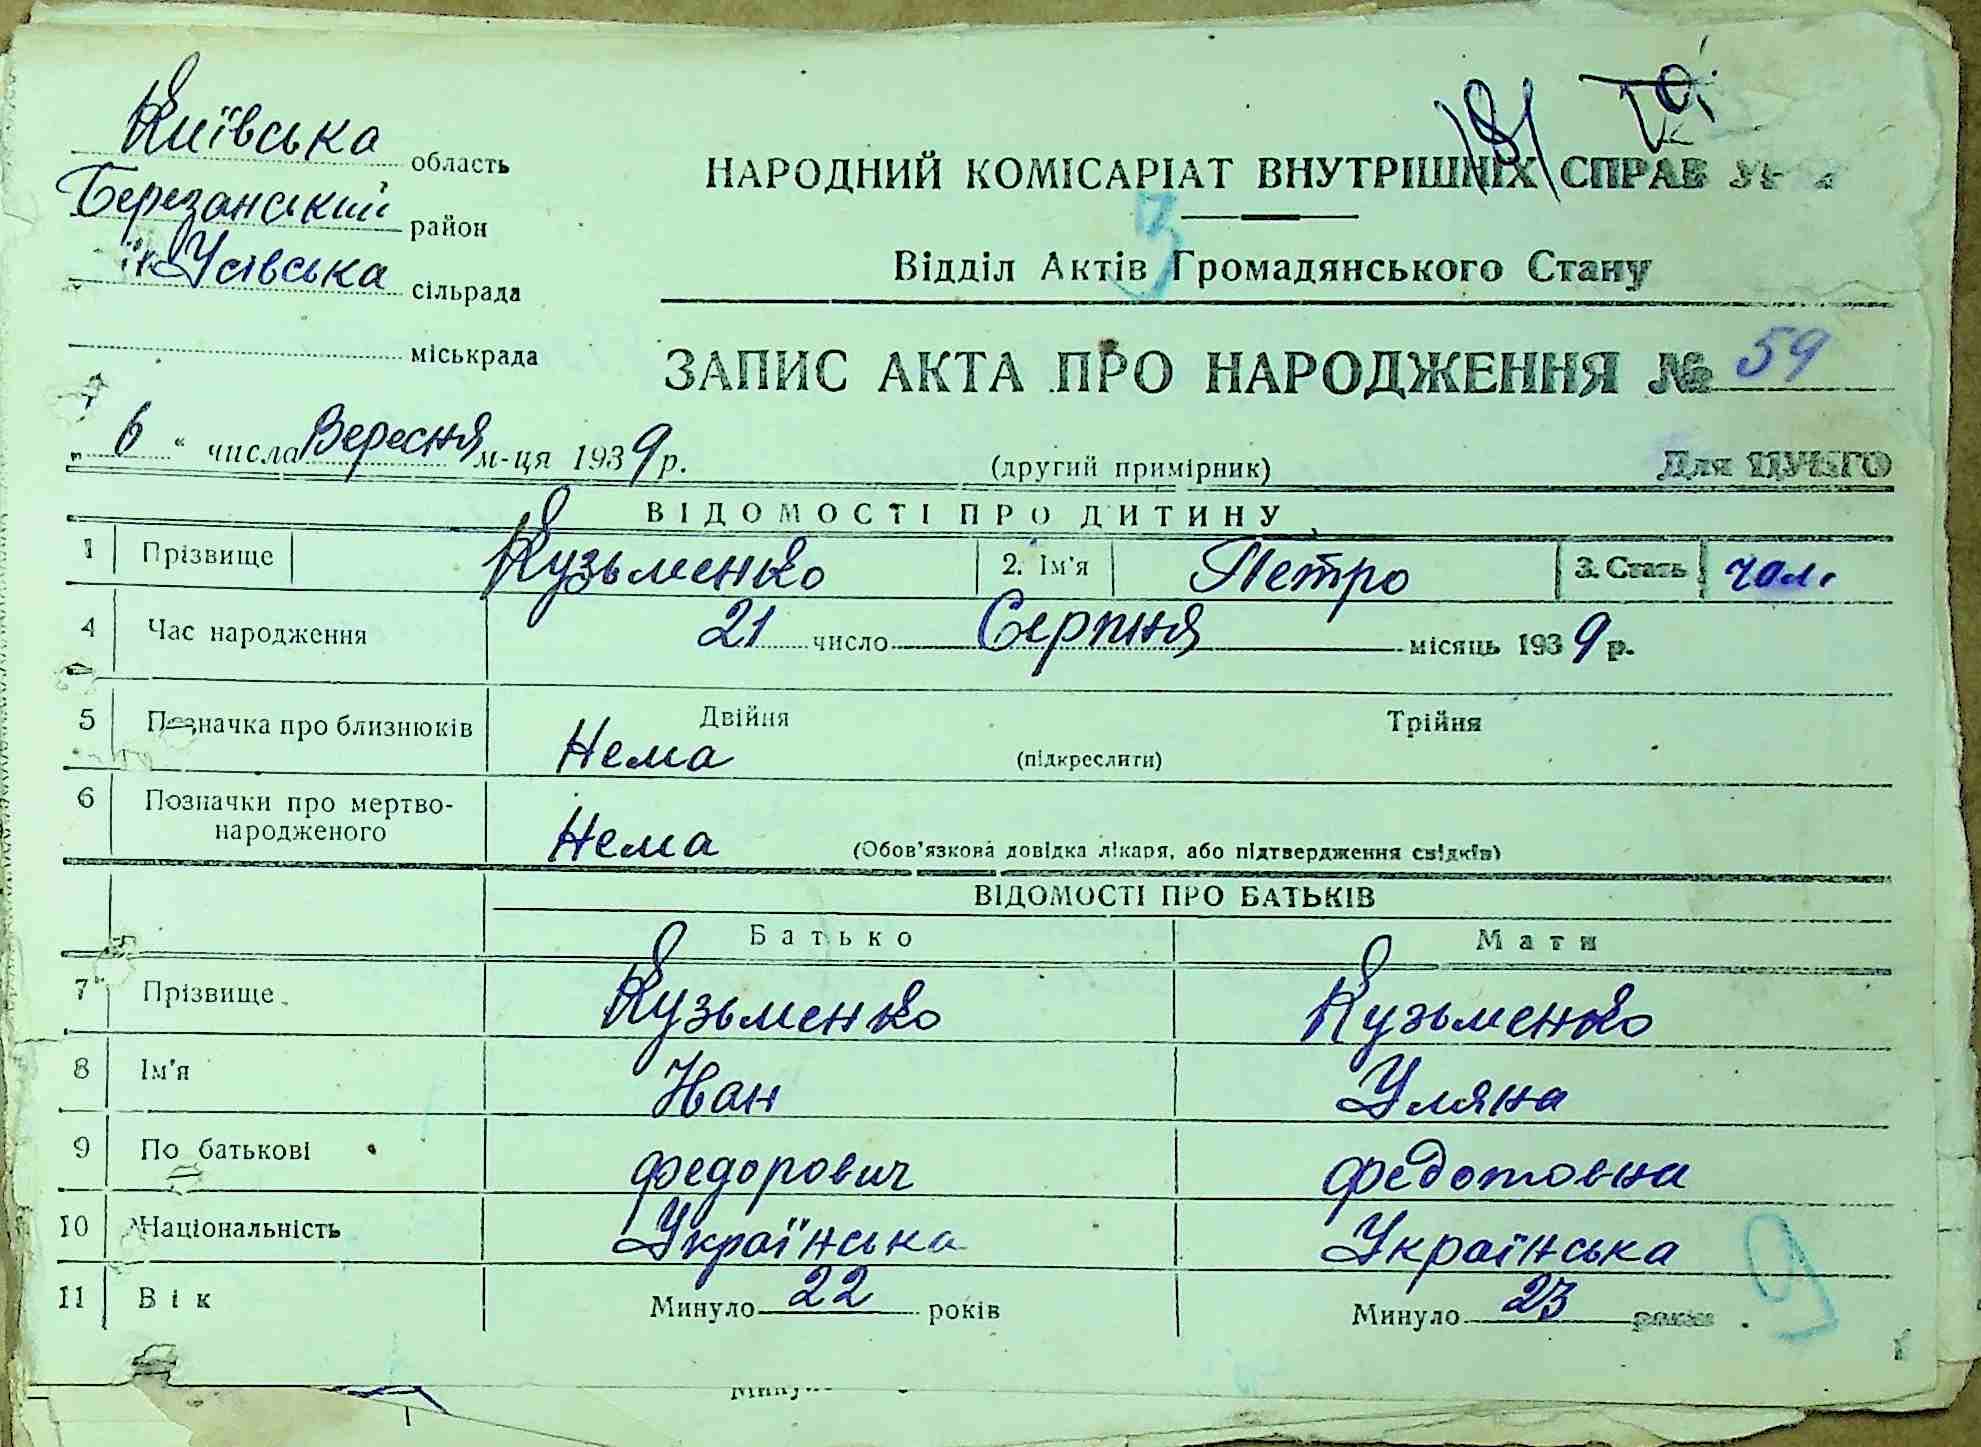 Київська область
Березанський район
Усівська сільрада
міськрада
НАРОДНИЙ КОМІСАРІАТ ВНУТРІШНІХ СПРАВ
Відділ Актів Громадянського Стану
ЗАПИС АКТА ПРО НАРОДЖЕННЯ № 59
„ 6 “ числа Вересня м-ця 1939 р.
(другий примірник)
Для ЦУНГО
ВІДОМОСТІ ПРО ДИТИНУ
1 Прізвище Кузьменко 2. Ім'я Петро 3. Стать чол.
4 Час народження 21 число Серпня місяць 1939 р.
5 Позначка про близнюків Нема Двійня Трійня
(підкреслити)
6 Позначки про мертво-
народженого Нема (Обов'язкова довідка лікаря, або підтвердження свідків)
ВІДОМОСТІ ПРО БАТЬКІВ
Батько Мати
7 Прізвище Кузьменко Кузьменко
8 Ім'я Іван Уляна
9 По батькові федорович федотовна
10 Національність Українська Українська
11 Вік Минуло 22 років Минуло 23 років